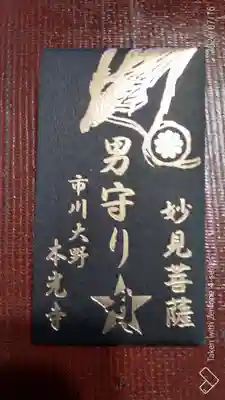 妙見菩薩
男守り
市川大野
本光寺
Taken with Zenfone 4 series